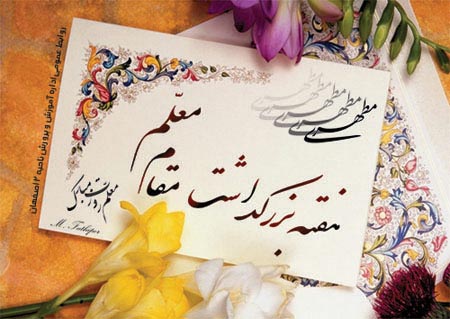 مطهری
مطهری
مطهری
مطهری
مطهری
هفته بزرگداشت
مقام
معلّم
معلم روزت مبارک
روابط عمومی اداره آموزش و پرورش ناحیه ۲ اصفهان